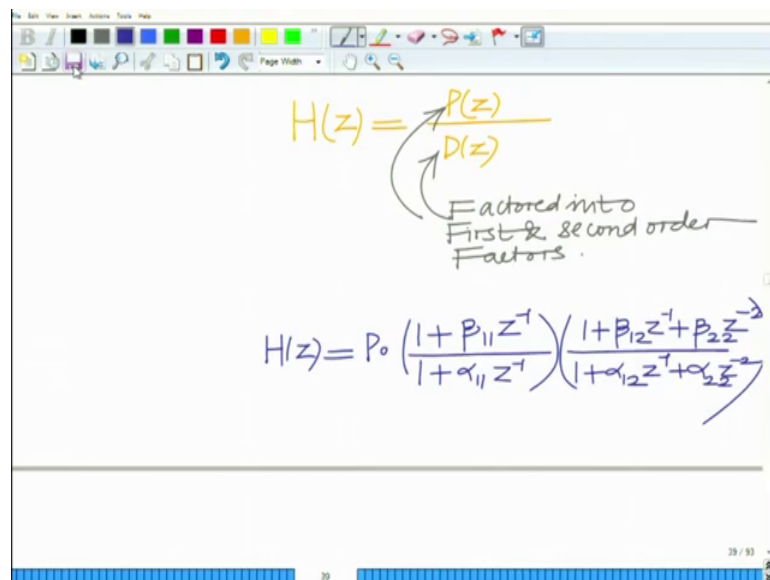 File Edit View Insert Actions Tools Help
B I
Page Width
H(z) = P(z) / D(z)
Factored into
First & second order
Factors.
H(z) = P₀ ( (1 + β₁₁ z⁻¹) / (1 + α₁₁ z⁻¹) ) ( (1 + β₁₂ z⁻¹ + β₂₂ z⁻²) / (1 + α₁₂ z⁻¹ + α₂₂ z⁻²) )
39 / 93
39